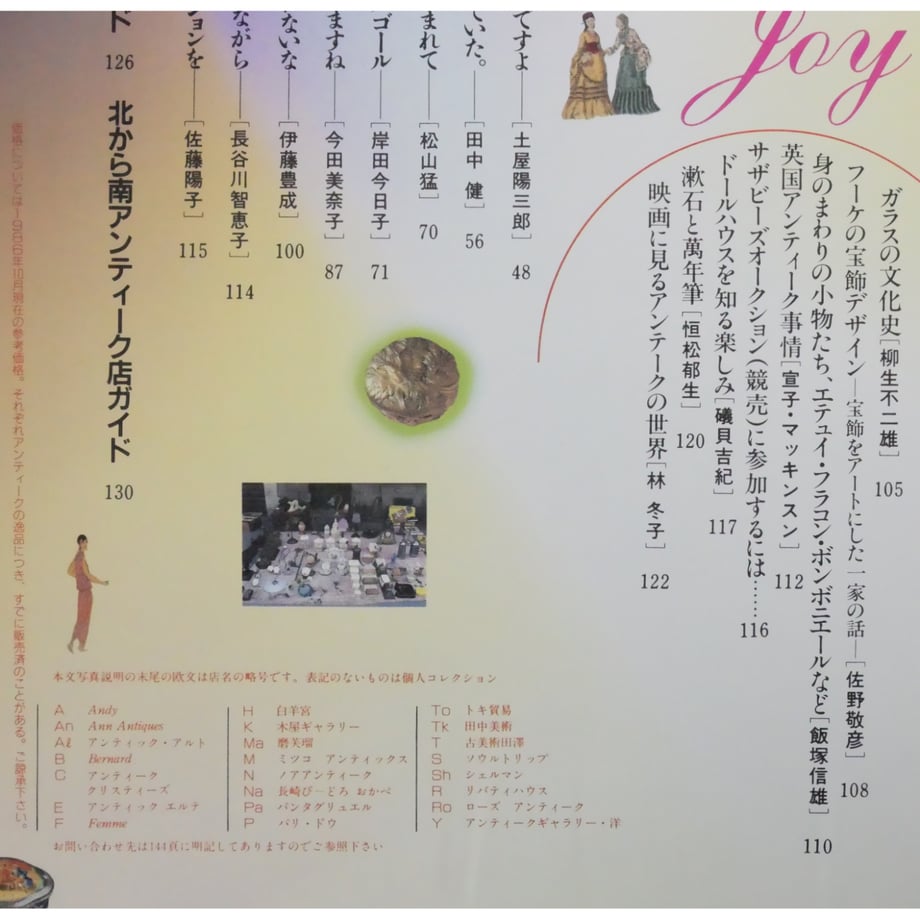 Joy
ガラスの文化史[柳生不二雄] 105
フーケの宝飾デザイン—宝飾をアートにした一家の話—[佐野敬彦] 108
身のまわりの小物たち、エテュイ・フラコン・ボンボニエールなど[飯塚信雄] 110
英国アンティーク事情[宣子・マッキンスン] 112
サザビーズオークション(競売)に参加するには…… 116
ドールハウスを知る楽しみ[礒貝吉紀] 117
漱石と萬年筆[恒松郁生] 120
映画に見るアンテークの世界[林 冬子] 122
てすよ——[土屋陽三郎] 48
ていた。——[田中 健] 56
まれて——[松山猛] 70
ゴール——[岸田今日子] 71
ますね——[今田美奈子] 87
ないな——[伊藤豊成] 100
ながら——[長谷川智恵子] 114
ションを——[佐藤陽子] 115
ド 126
北から南アンティーク店ガイド 130
価格については1986年10月現在の参考価格。それぞれアンティークの逸品につき、すでに販売済のことがある。ご諒承下さい。
本文写真説明の末尾の欧文は店名の略号です。表記のないものは個人コレクション
A Andy
An Ann Antiques
Aℓ アンティック・アルト
B Bernard
C アンティーク
クリスティーズ
E アンティック エルテ
F Femme
H 白羊宮
K 木屋ギャラリー
Ma 磨芙瑠
M ミツコ アンティックス
N ノアアンティーク
Na 長崎びーどろ おかべ
Pa パンタグリュエル
P パリ・ドウ
To トキ貿易
Tk 田中美術
T 古美術田澤
S ソウルトリップ
Sh シェルマン
R リバティハウス
Ro ローズ アンティーク
Y アンティークギャラリー・洋
お問い合わせ先は144頁に明記してありますのでご参照下さい